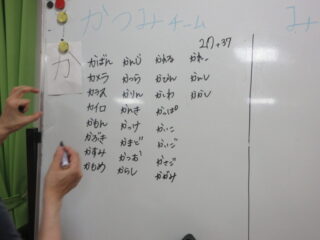 かつみチーム
み
か
27+37
かばん かんじ かれる かれー
カメラ かつら かびん かんし
カラス かりん かじわ かかし
カイロ かんき かっぱ
かもん かっけ かいこ
かぶき かまど かいじ
かすみ かつお かさご
かもめ からし かがみ